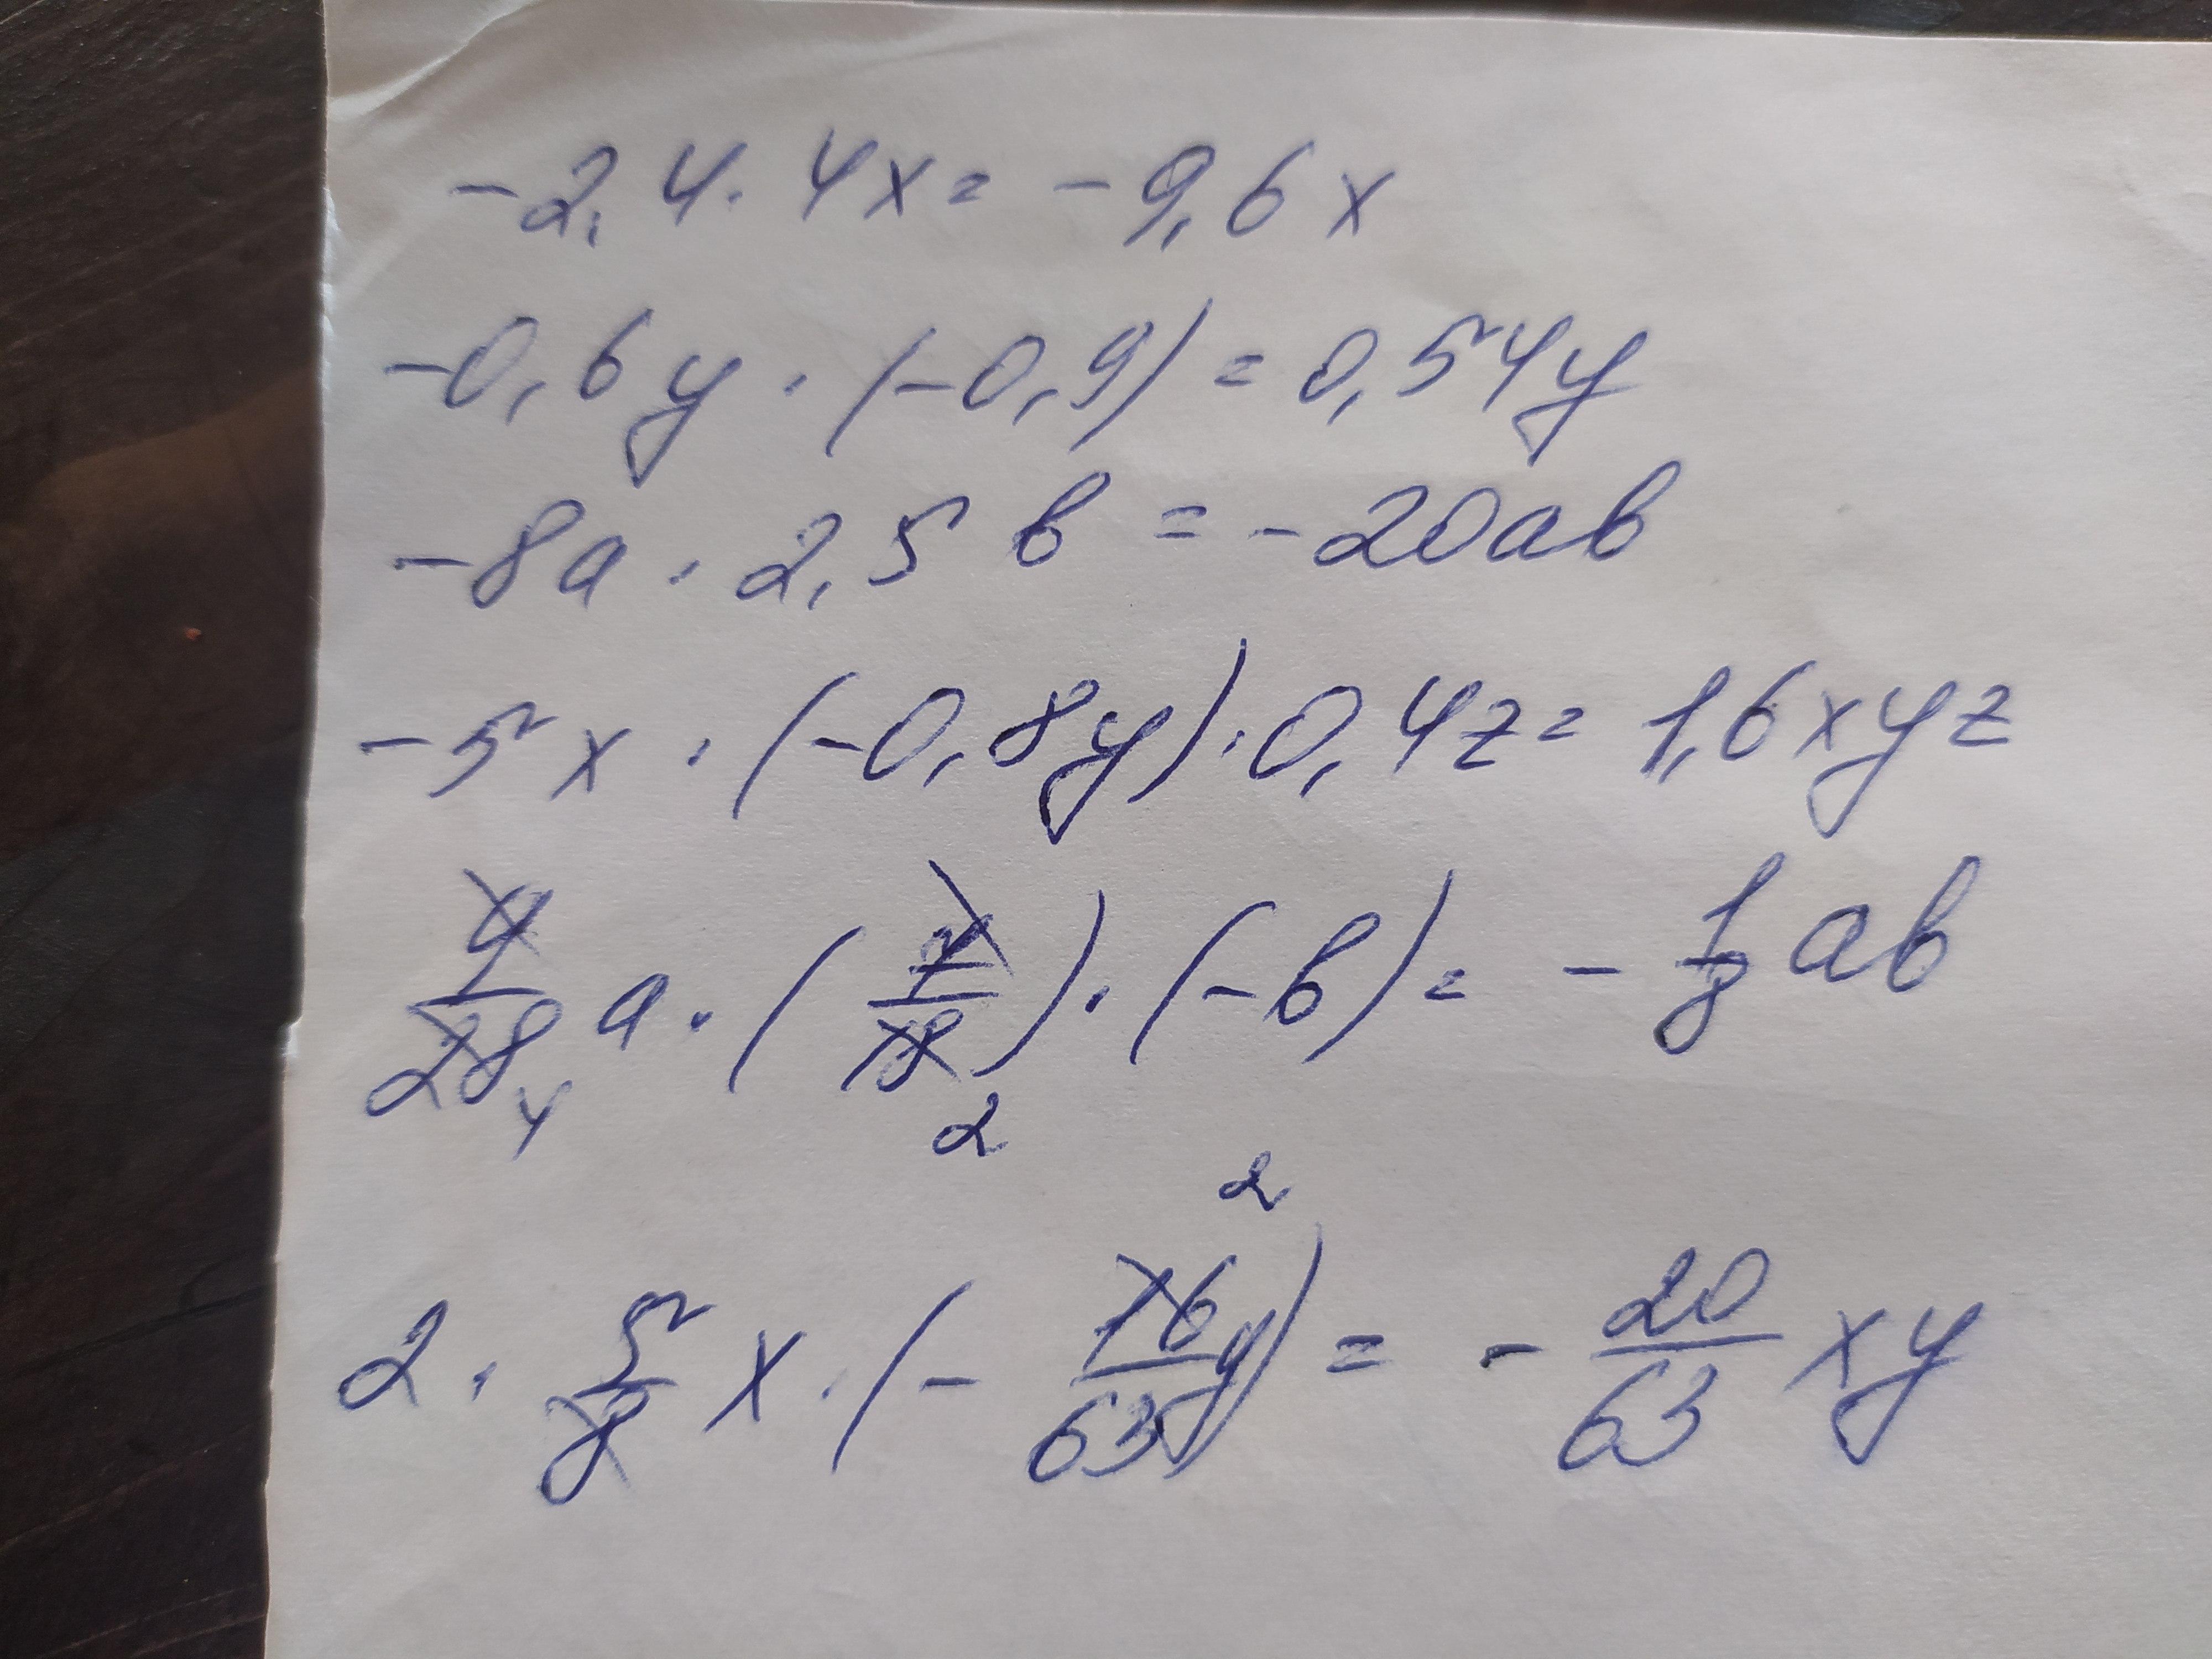 -2,4 · 4x = -9,6x
-0,6y · (-0,9) = 0,54y
-8a · 2,5 b = -20ab
-5x · (-0,8y) · 0,4z = 1,6xyz
9/28 4 a · (7/18 2) · (-b) = -1/8 ab
2 · 5/8 x · (- 16/63 y) 2 = - 20/63 xy